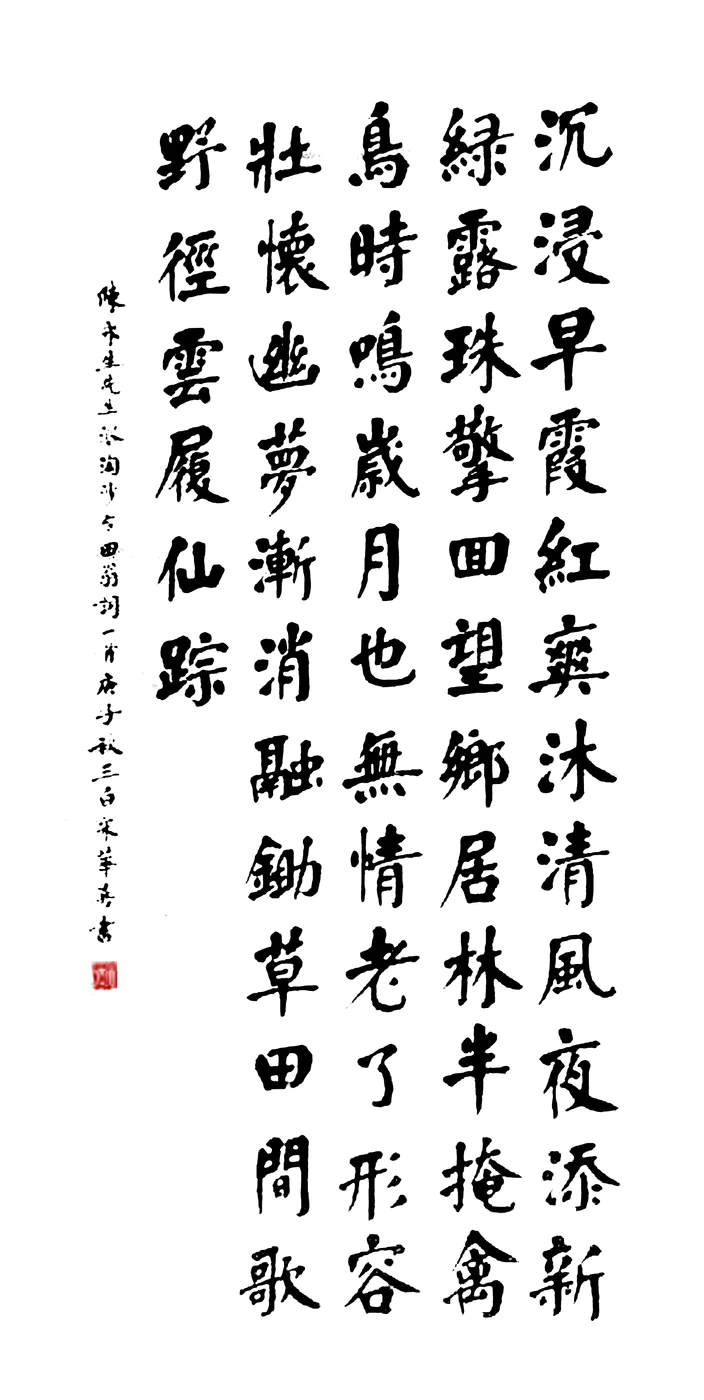 沉浸早霞紅爽沐清風夜添新
綠露珠擎回望鄉居林半掩禽
鳥時鳴歲月也無情老了形容
壯懷幽夢漸消融鋤草田間歌
野徑雲履仙踪
陳永生先生浪淘沙令田翁詞一首庚子秋三白宋華喜書